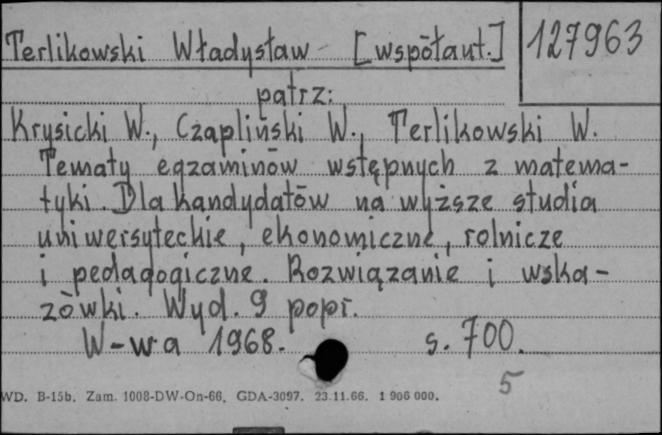 Terlikowski Władysław [współaut.] 127963
patrz:
Krysicki W., Czapliński W., Terlikowski W.
Tematy egzaminów wstępnych z matema-
tyki. Dla kandydatów na wyższe studia
uniwersyteckie, ekonomiczne, rolnicze
i pedagogiczne. Rozwiązanie i wska-
zówki. Wyd. 9 popr.
W-wa 1968. s. 700.
5
WD. B-15b. Zam. 1008-DW-On-66. GDA-3097. 23.11.66. 1 906 000.